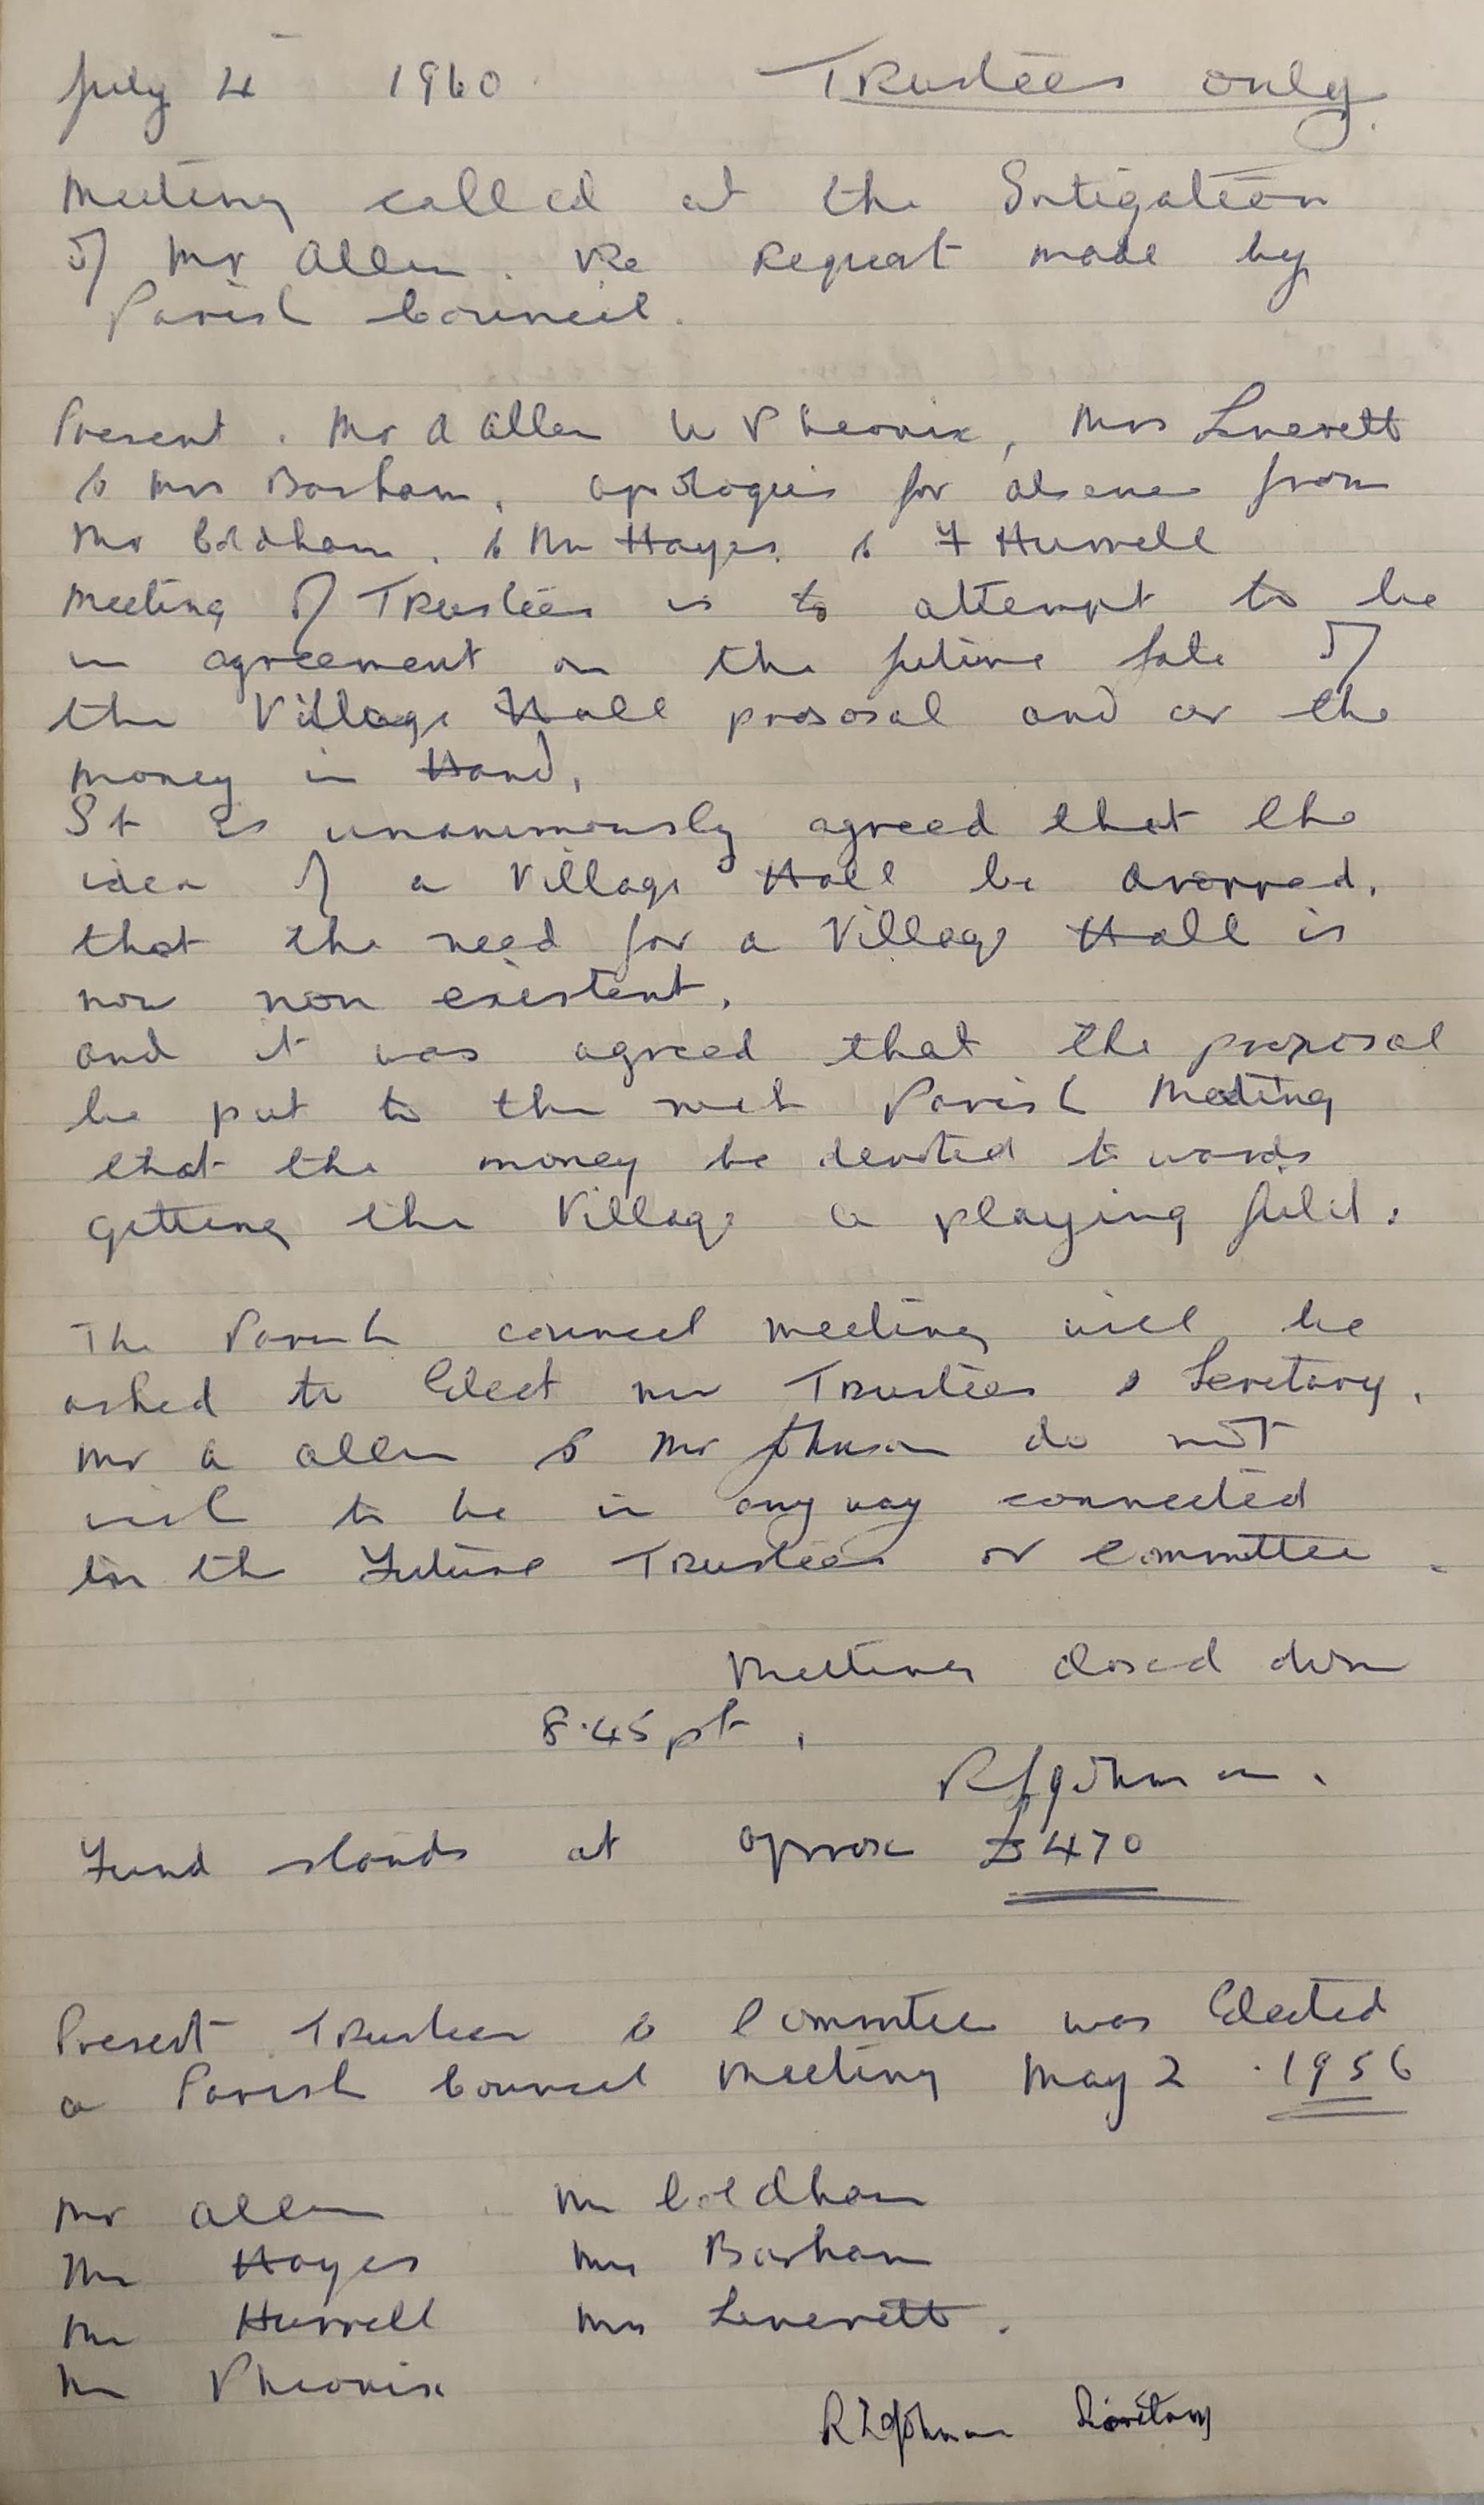 July 4 1960 Trustees only.
Meeting called at the Intigation
of Mr Allen. Re Request made by
Parish Council.
Present. Mr A Allen W Pheonix, Mrs Leverett
& Mrs Barham. apologies for absence from
Mr Coldham. & Mr Hayes. & F Hurrell
Meeting of Trustees is to attempt to be
in agreement on the future fate of
the Village Hall prososal and or the
money in Hand.
It is unanimously agreed that the
idea of a Village Hall be
that the need for a Village Hall is
now non existent.
and it was agreed that the proposal
be put to the next Parish Meeting
that the money be devoted towards
getting the Village a playing field.
The Parish council meeting will be
asked to Elect new Trustees & Secretary.
Mr A Allen & Mr Johnson do not
wish to be in anyway connected
the Future Trustees or Committee.
Meeting closed down
8.45
Johnson.
Fund stands at aprox £470
Present Trustees & Committee was Elected
a Parish Council Meeting May 2 . 1956
Mr Allen Mr Coldham
Mr Hayes Mrs Barham
Mr Hurrell Mrs Leverett.
Mr Pheonix
Johnson Secretary